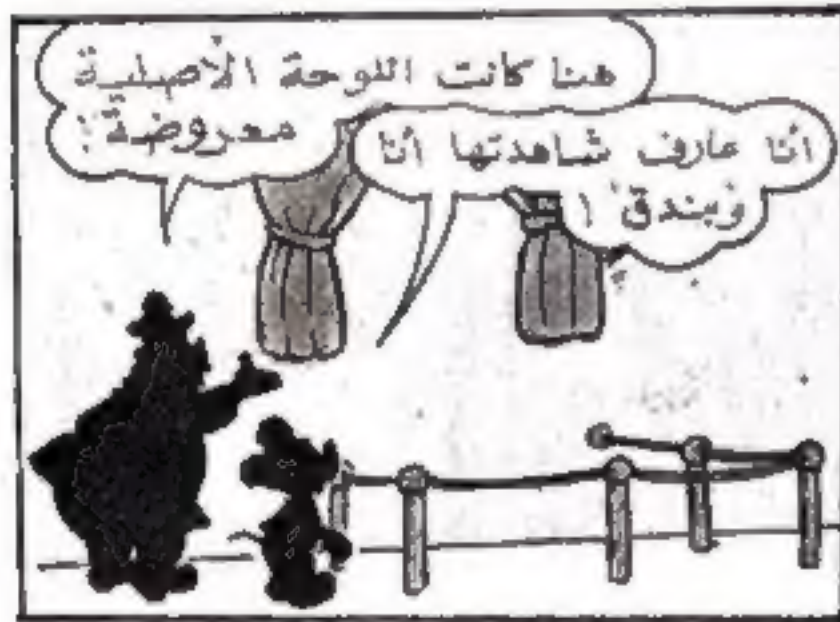 هنا كانت اللوحة الأصلية
معروضة !
أنا عارف شاهدتها أنا
وبندق !